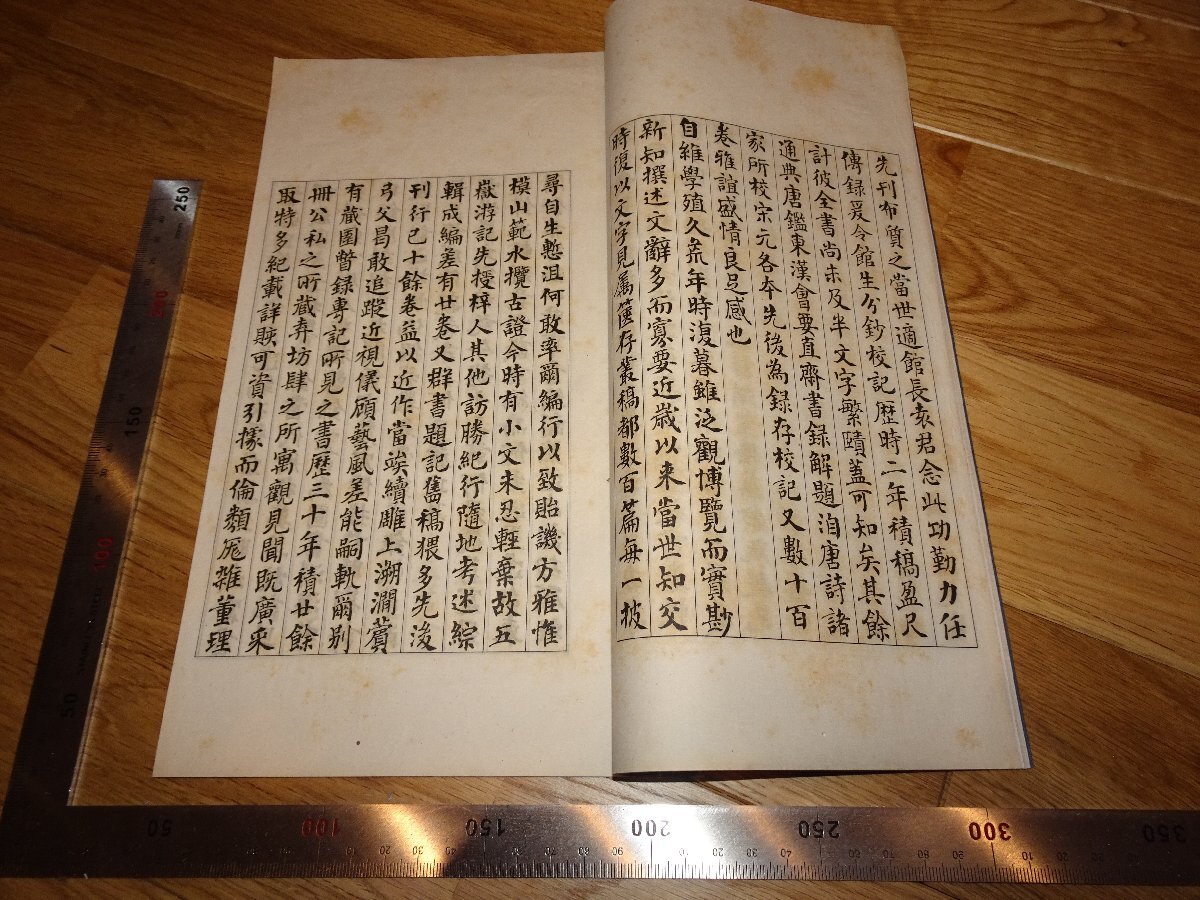 先刊布質之當世適館長袁君念此功勤力任
傳錄爰令館生分鈔校記歷時二年積稿盈尺
計彼全書尚未及半文字繁賾蓋可知矣其餘
通典唐鑑東漢會要直齋書錄解題洎唐詩諸
家所校宋元各本先後為錄存校記又數十百
卷雅誼盛情良足感也
自維學殖久荒年時復暮雖泛觀博覽而實尠
新知撰述文辭多而寡要近歲以來當世知交
時復以文字見屬篋存叢稿都數百篇每一披
尋自生慙沮何敢率爾編行以致貽譏方雅惟
模山範水攬古證今時有小文未忍輕棄故五
嶽游記先授梓人其他訪勝紀行隨地考述綜
輯成編差有廿卷又群書題記舊稿猥多先後
刊行已十餘卷益以近作當竢續雕上溯澗薲
弓父曷敢追蹤近視儀顧藝風差能嗣軌爾別
有藏園瞥錄專記所見之書歷三十年積廿餘
冊公私之所藏弆坊肆之所寓觀見聞既廣采
取特多紀載詳賅可資引據而倫類厖雜董理
250
200
150
100
50
50
100
150
200
250
300
350